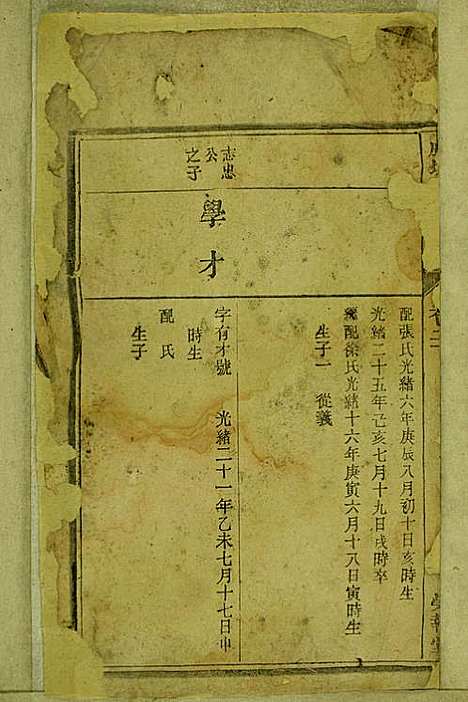 卷二
配張氏光緒六年庚辰八月初十日亥時生
光緒二十五年己亥七月十九日戌時卒
繼配徐氏光緒十六年庚寅六月十八日寅時生
生子一 從義
志忠
公
之子
學才
字有才號 光緒二十一年乙未七月十七日申
時生
配 氏
生子